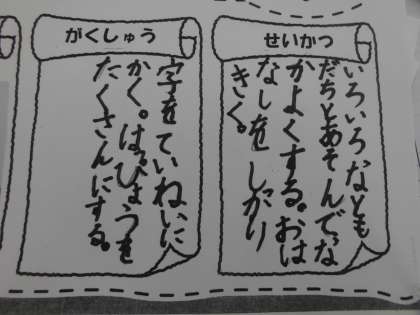 せいかつ
いろいろなとも
だちとあそんでな
かよくする。おは
なしをしっかり
きく。
がくしゅう
字をていねいに
かく。はっぴょうを
たくさんにする。